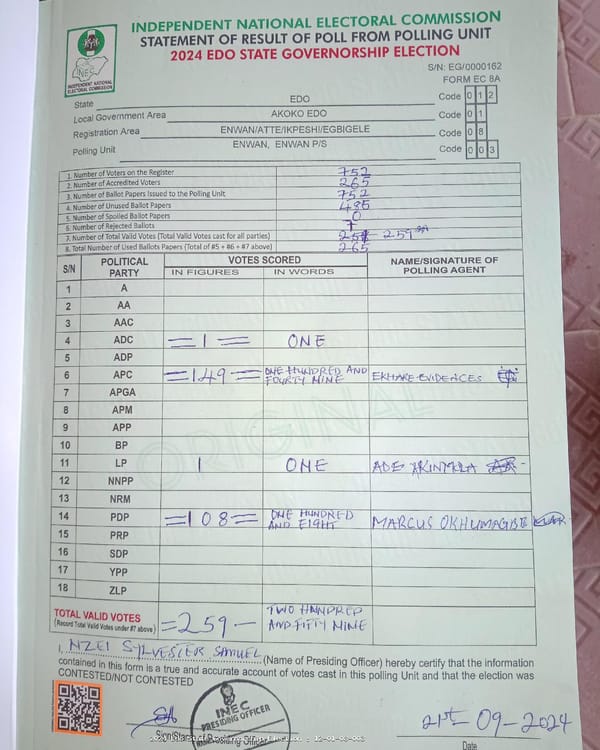 INDEPENDENT NATIONAL ELECTORAL COMMISSION
STATEMENT OF RESULT OF POLL FROM POLLING UNIT
2024 EDO STATE GOVERNORSHIP ELECTION
INEC
INDEPENDENT NATIONAL
ELECTORAL COMMISSION
S/N: EG/0000162
FORM EC 8A
State EDO Code 0 1 2
Local Government Area AKOKO EDO Code 0 1
Registration Area ENWAN/ATTE/IKPESHI/EGBIGELE Code 0 8
Polling Unit ENWAN, ENWAN P/S Code 0 0 3
1. Number of Voters on the Register 752
2. Number of Accredited Voters 265
3. Number of Ballot Papers Issued to the Polling Unit 752
4. Number of Unused Ballot Papers 485
5. Number of Spoiled Ballot Papers 0
6. Number of Rejected Ballots 7
7. Number of Total Valid Votes (Total Valid Votes cast for all parties) 259
8. Total Number of Used Ballots Papers (Total of #5 + #6 + #7 above) 265
S/N POLITICAL PARTY VOTES SCORED NAME/SIGNATURE OF POLLING AGENT
IN FIGURES IN WORDS
1 A
2 AA
3 AAC
4 ADC =1= ONE
5 ADP
6 APC =149= ONE HUNDRED AND FOURTY NINE EKHARE EVIDENCES
7 APGA
8 APM
9 APP
10 BP
11 LP 1 ONE ADE
12 NNPP
13 NRM
14 PDP =108= ONE HUNDRED AND EIGHT MARCUS
15 PRP
16 SDP
17 YPP
18 ZLP
ORIGINAL
TOTAL VALID VOTES =259— TWO HUNDRED AND FIFTY NINE
(Record Total Valid Votes under #7 above)
I, NZEI SYLVESTER SAMUEL (Name of Presiding Officer) hereby certify that the information
contained in this form is a true and accurate account of votes cast in this polling Unit and that the election was
CONTESTED/NOT CONTESTED
INEC
PRESIDING OFFICER
21st-09-2024
Date